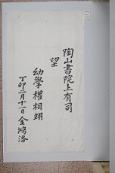 陶山書院上有司
望
幼學權相翊
丁卯二月十一日金鴻洛